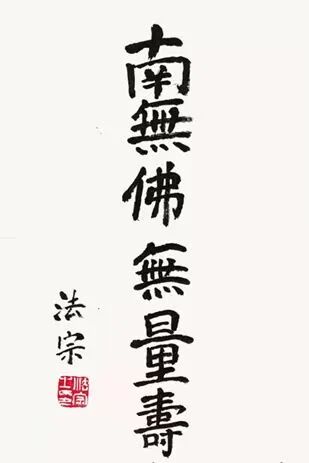 南無佛無量壽
法宗